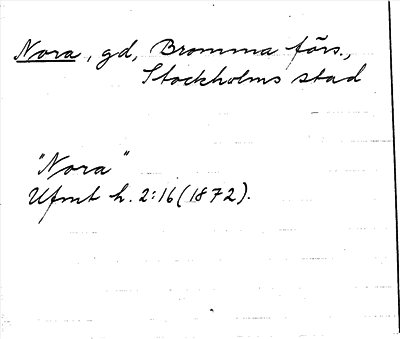 Nora, gd, Bromma förs.,
Stockholms stad
"Nora"
Ufmt h. 2:16 (1872).